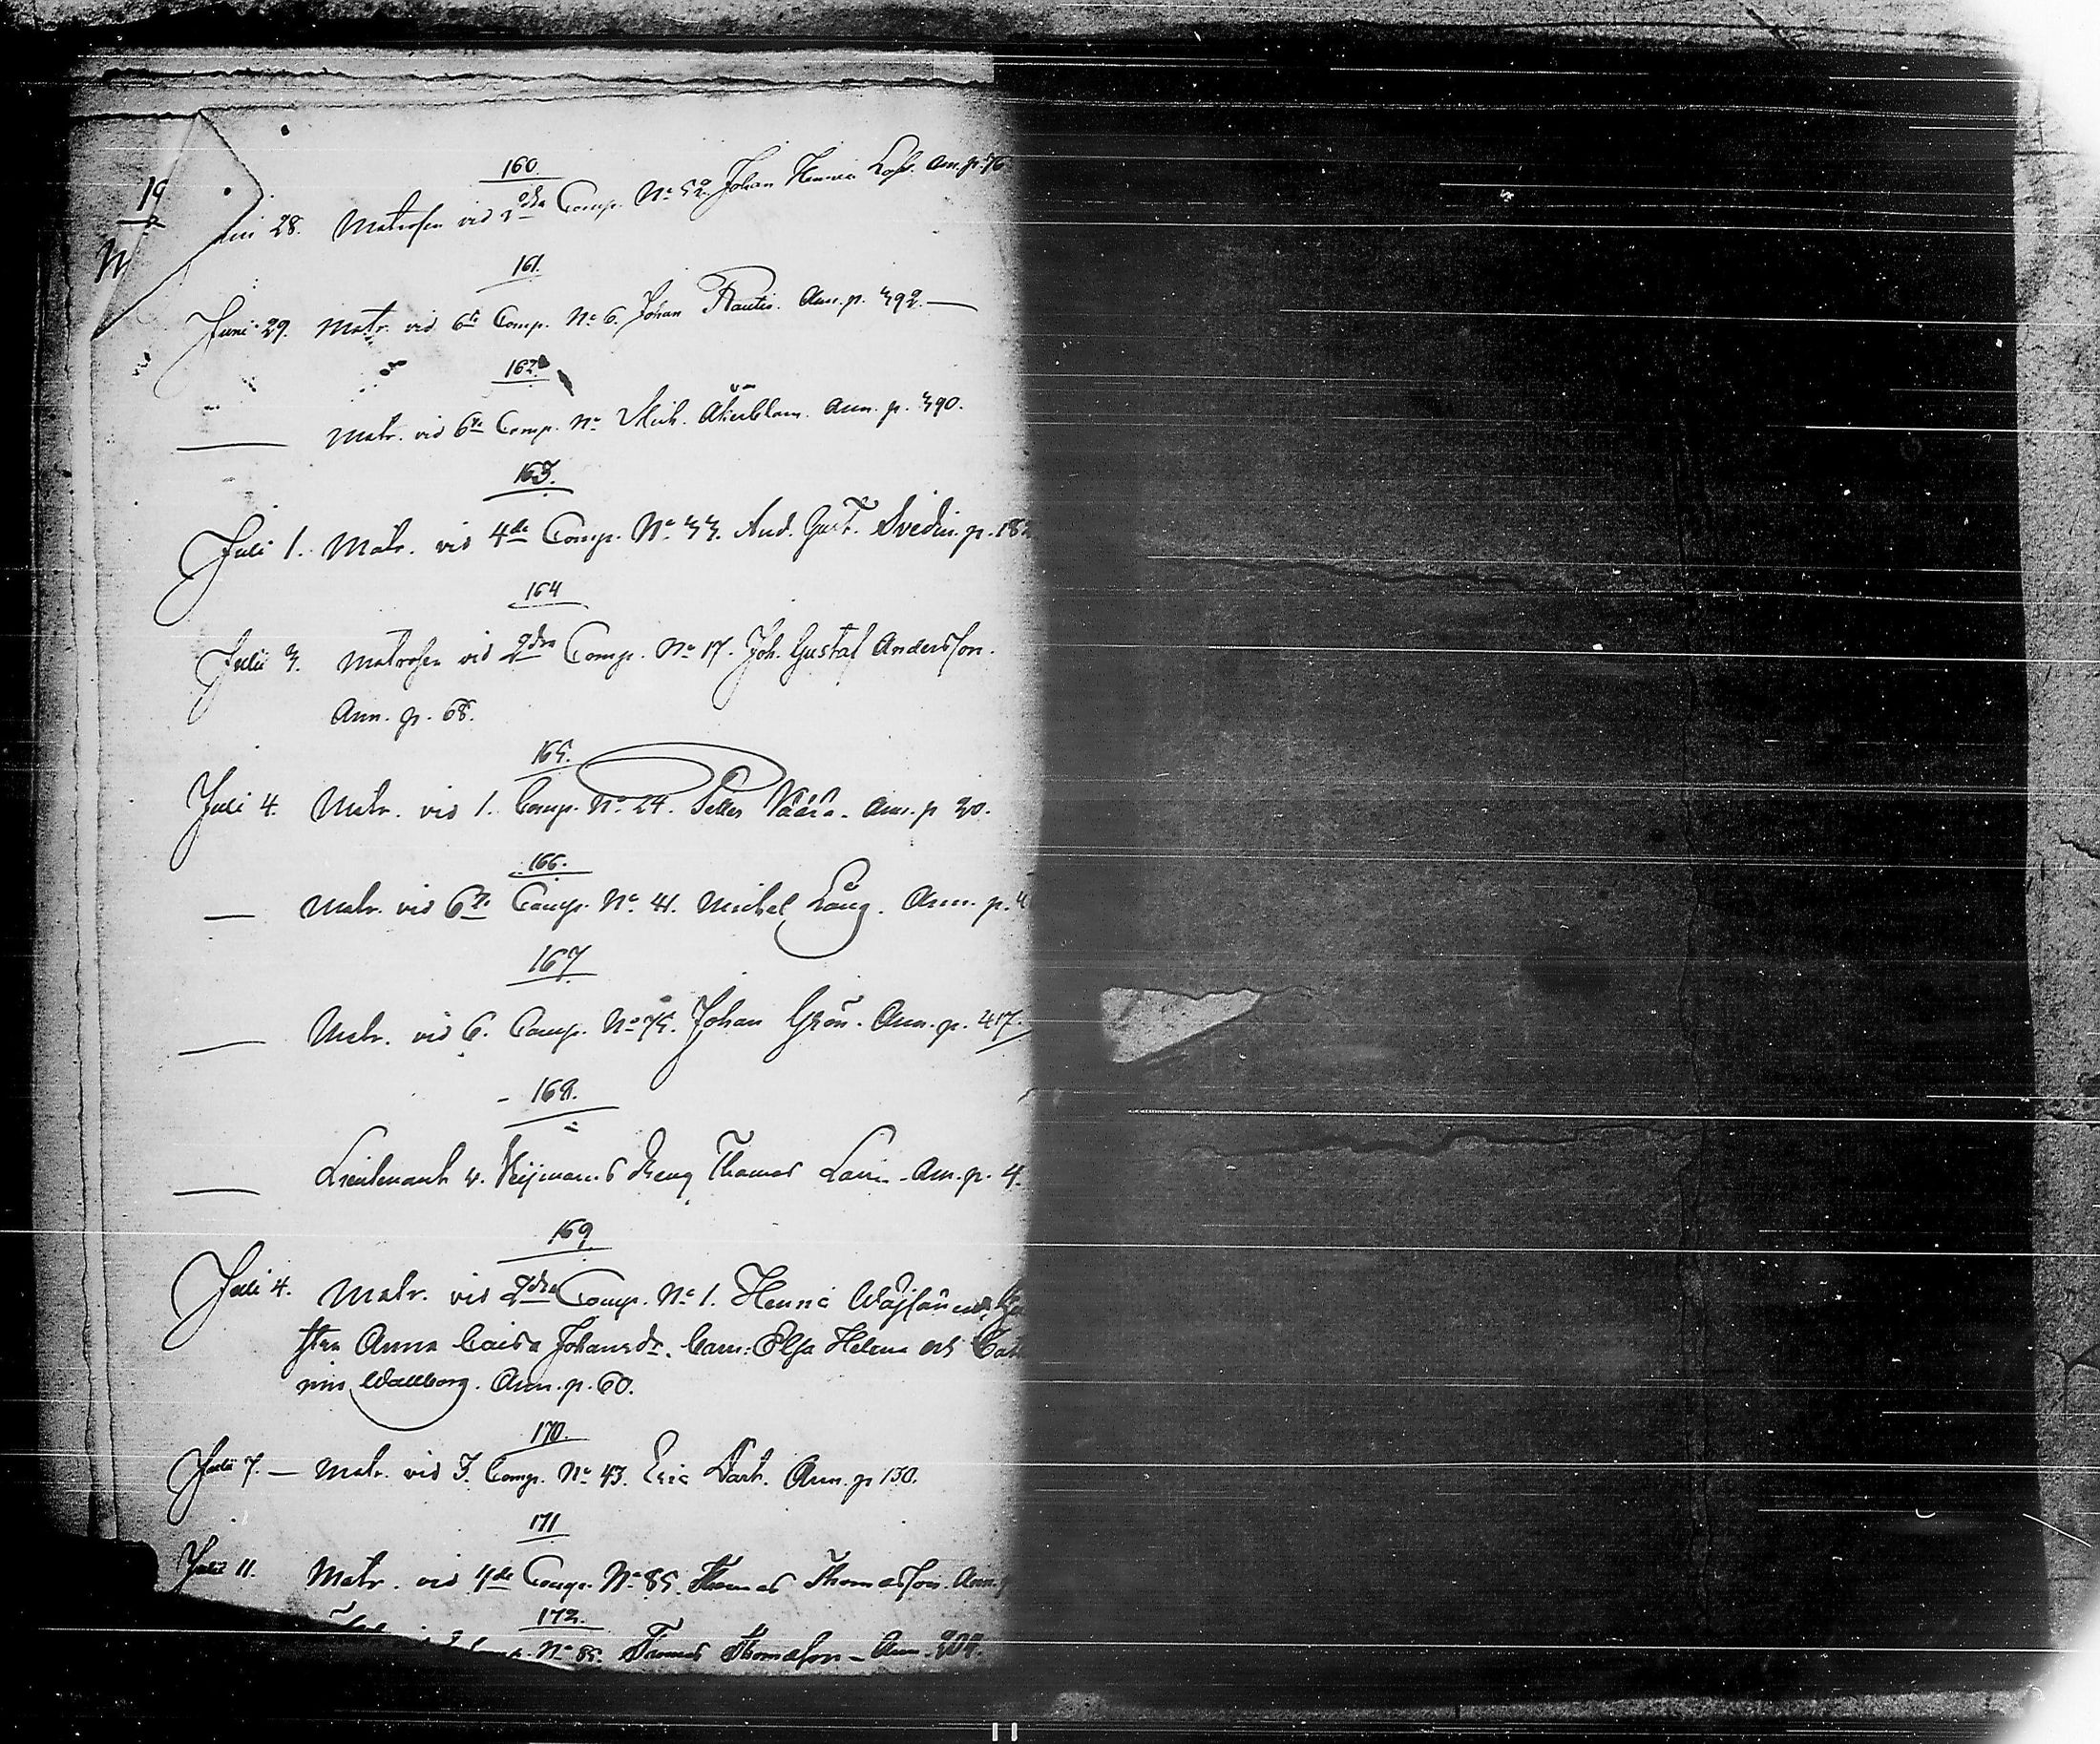 160.
28. Matrosen vid 2dra Comp. No 52. Johan Henric Ann. p. 76
161.
Juni 29. Matr. vid 6te Comp. No 6. Johan Rautio. Ann. p. 392.
162.
Matr. vid 6te Comp. No Mich. Åkerblom. Ann. p. 390.
163.
Juli 1. Matr. vid 4de Comp. No 33. And. Gust. Svedin. p. 182
164
Julii 3. Matrosen vid 2dra Comp. No 17. Joh. Gustaf Andersson.
Ann. p. 68.
165.
Juli 4. Matr. vid 1. Comp. No 24. Petter Väärä. Ann. p 30.
166.
— Matr. vid 6te Comp. No 41. Michel Lång. Ann. p. 4
167
— Matr. vid 6. Comp. No 75. Johan Grön. Ann. p. 417.
168.
— Lieutenant v. Dreng Thomas Ann. p. 4
169.
Juli 4. Matr. vid 2dra Comp. No 1. Henric
Anna Caisa Johansdr. Barn: Elsa Helena och
Wallborg. Ann. p. 60.
170.
Julii 7. — Matr. vid 3. Comp. No 43. Eric Ann. p 130.
171
Julii 11. Matr. vid 4de Comp. No 85. Thomas Thomasson. Ann. p
172.
No 85. Thomas Thomasson – Ann.